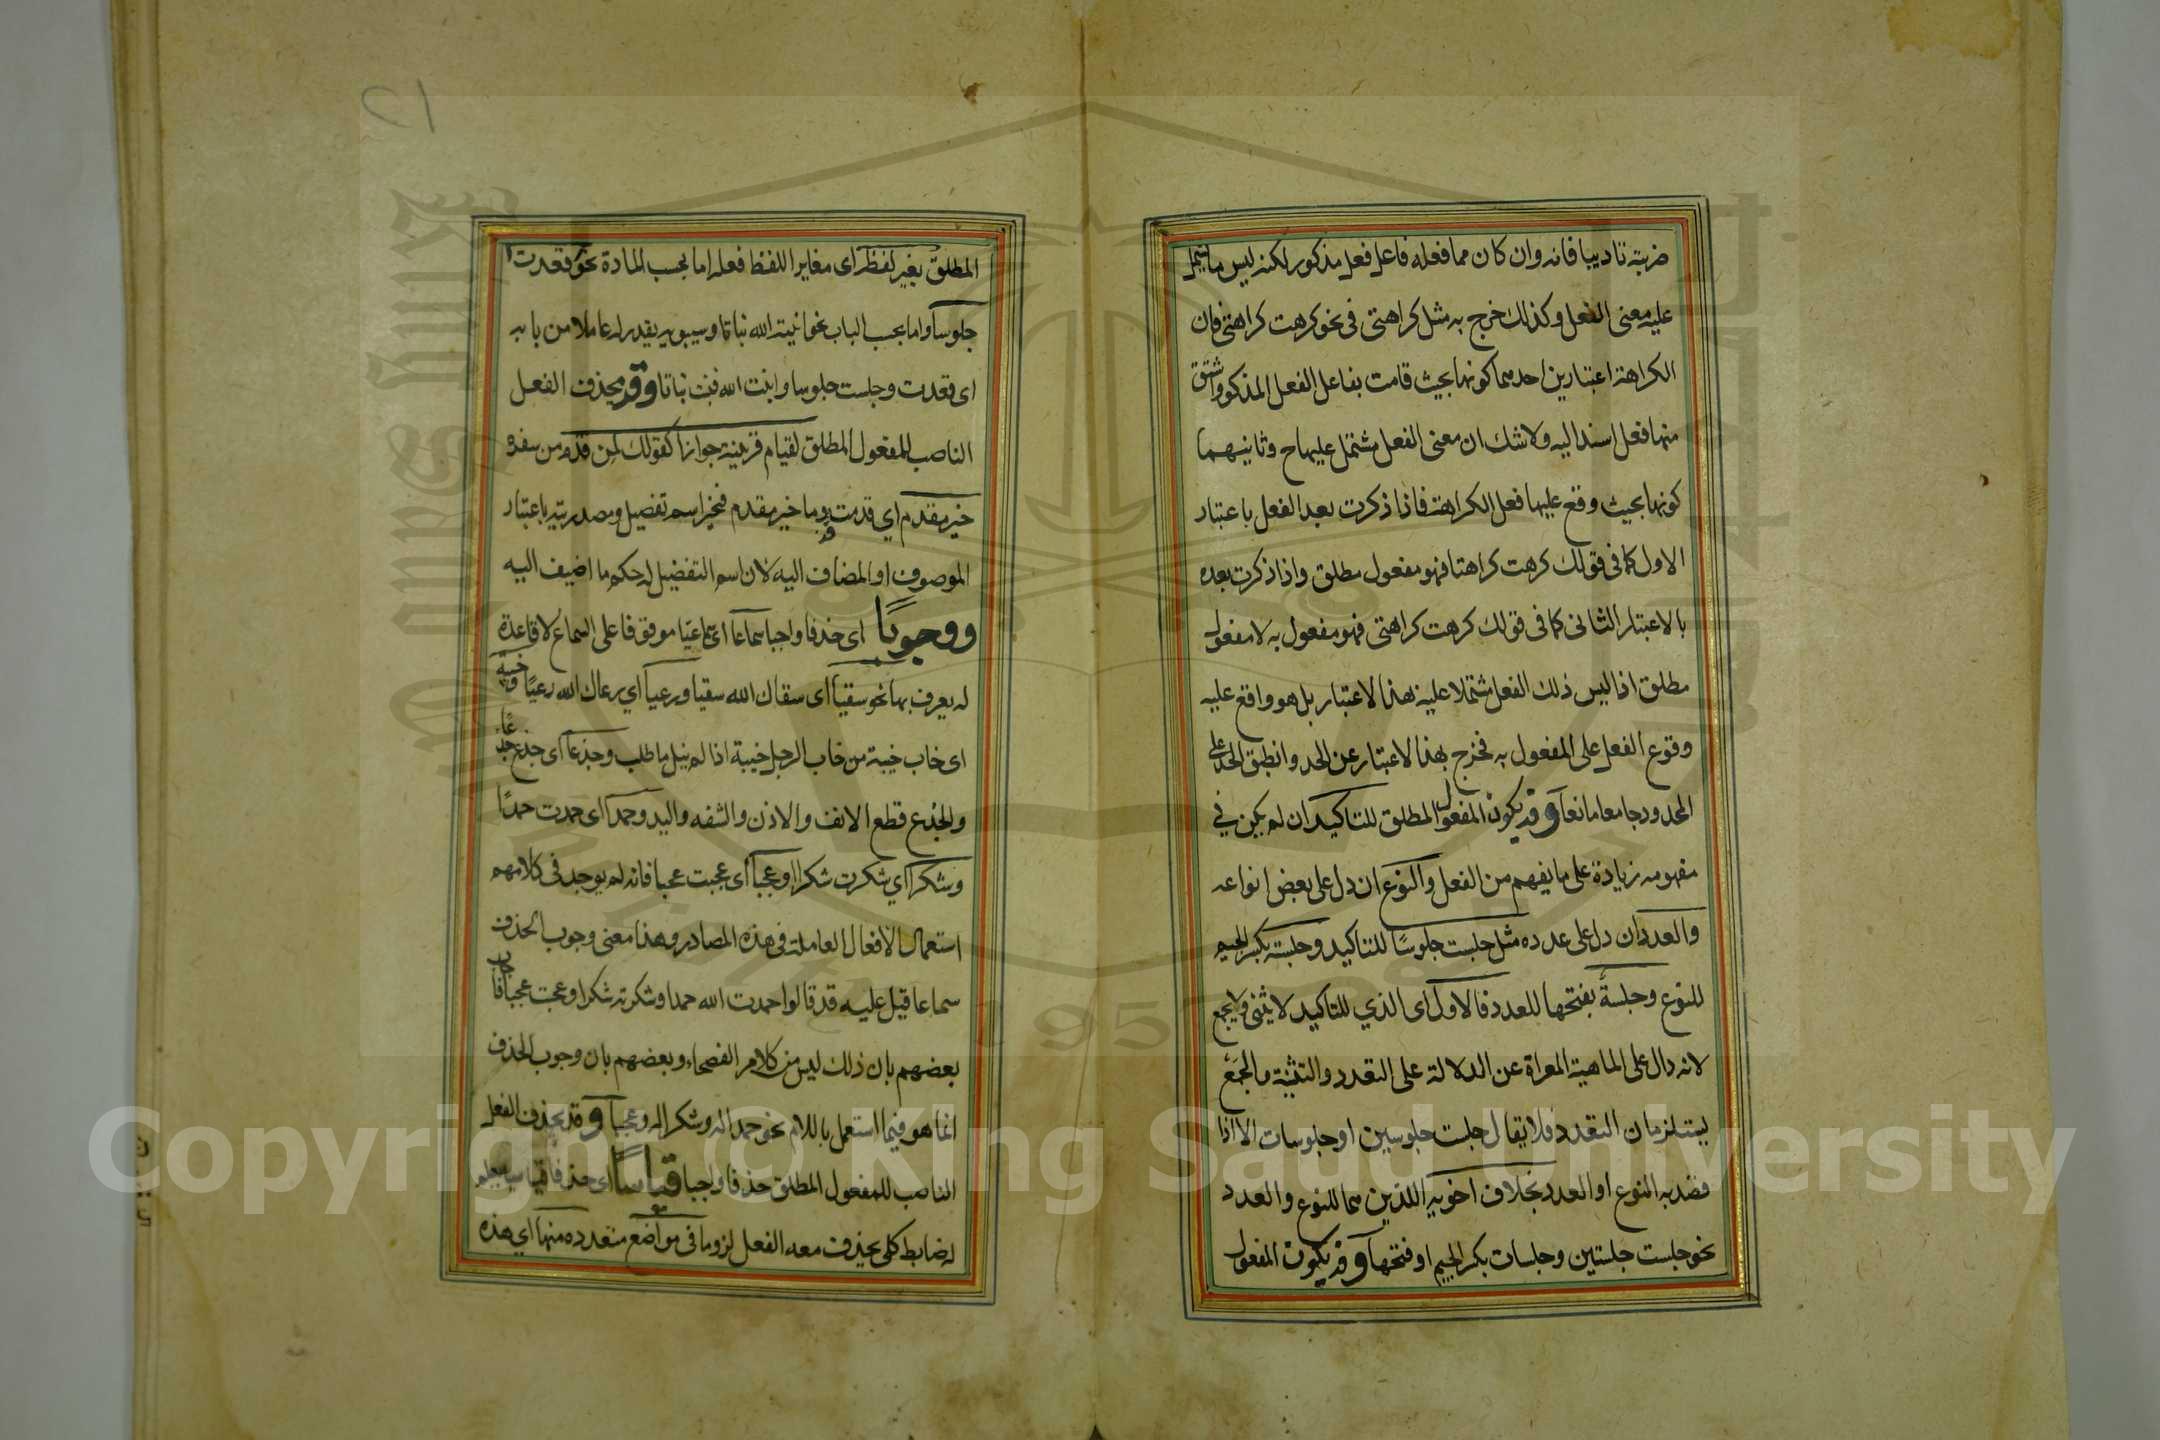 ضربته تاديبا فانه وان كان مما فعله فاعل فعل مذكور لكنه ليس مما يشتمل
عليه معنى الفعل وكذلك خرج به مثل كراهتى فى نحو كرهت كراهتى فان
الكراهة اعتبارين احدهما كونها بحيث قامت بفاعل الفعل المذكور واشتق
منها فعل اسند اليه ولا شك ان معنى الفعل مشتمل عليها ح وثانيهما
كونها بحيث وقع عليها فعل الكراهة فاذا ذكرت بعد الفعل باعتبار
الاول كما فى قولك كرهت كراهتا فهو مفعول مطلق واذا ذكرت بعده
بالاعتبار الثانى كما فى قولك كرهت كراهتى فهو مفعول به لا مفعول
مطلق اذ اليس ذلك الفعل مشتملا عليه هذا الاعتبار بل هو واقع عليه
وقوع الفعل على المفعول به فخرج بهذا الاعتبار عن الحد وانطبق الحد على
المحدود جامعا مانعا وقد يكون المفعول المطلق للتاكيد ان لم يكن في
مفهومه زيادة على ما يفهم من الفعل والنوع ان دل على بعض انواعه
والعدد ان دل على عدده مثل جلست جلوسًا للتاكيد وجلسة بكسر الجيم
للنوع وجلسةً بفتحها للعدد فالاول اى الذي للتاكيد لا يثنى ولا يجمع
لانه دال على الماهية المعراة عن الدلالة على التعدد والتثنية والجمع
يستلزمان التعدد فلا يقال جلست جلوسين او جلوسات الا اذا
قصد به النوع او العدد بخلاف اخويه اللذين هما للنوع والعدد
نحو جلست جلستين وجلسات بكسر الجيم او فتحها وقد يكون المفعول
المطلق بغير لفظه اى مغايرا للفظ فعله اما بحسب المادة نحو قعدت
جلوسا واما بحسب الباب نحو انبته الله نباتا وسيبويه يقدر له عاملا من بابه
اى قعدت وجلست جلوسا وانبت الله فنبت نباتا وقد يحذف الفعل
الناصب للمفعول المطلق لقيام قرينة جوازا كقولك لمن قدم من سفره
خير مقدم اي قدمت قدوما خير مقدم فخير اسم تفضيل ومصدريته باعتبار
الموصوف او المضاف اليه لان اسم التفضيل له حكم ما اضيف اليه
ووجوبًا اى حذفا واجبا سماعا اى سماعيّا موقوفا على السماع لا قاعدة
له يعرف بها نحو سقيا اى سقاك الله سقيا ورعيا اي رعاك الله رعيًا وخيبة
اى خاب خيبة من خاب الرجل خيبة اذا لم ينل ما طلب وجدعا اى جدع جدعًا
والجدع قطع الانف والاذن والشفه واليد وحمدا اى حمدت حمدًا
وشكرا اي شكرت شكرا وعجبا اى عجبت عجبا فانه لم يوجد فى كلامهم
استعمال الافعال العاملة فى هذه المصادر وهذا معنى وجوب الحذف
سماعا قيل عليه قد قالوا حمدت الله حمدا وشكرته شكرا وعجبت عجبا فاجاب
بعضهم بان ذلك ليس من كلام الفصحاء وبعضهم بان وجوب الحذف
انما هو فيما استعمل باللام نحو حمدا له وشكرا له وعجبا وقد يحذف الفعل
الناصب للمفعول المطلق حذفا واجبا قياسًا اى حذفا قياسيا يعلم
له ضابط كلى يحذف معه الفعل لزوما فى مواضع متعدده منها اي هذه
Copyright © King Saud University
King Saud University
1957